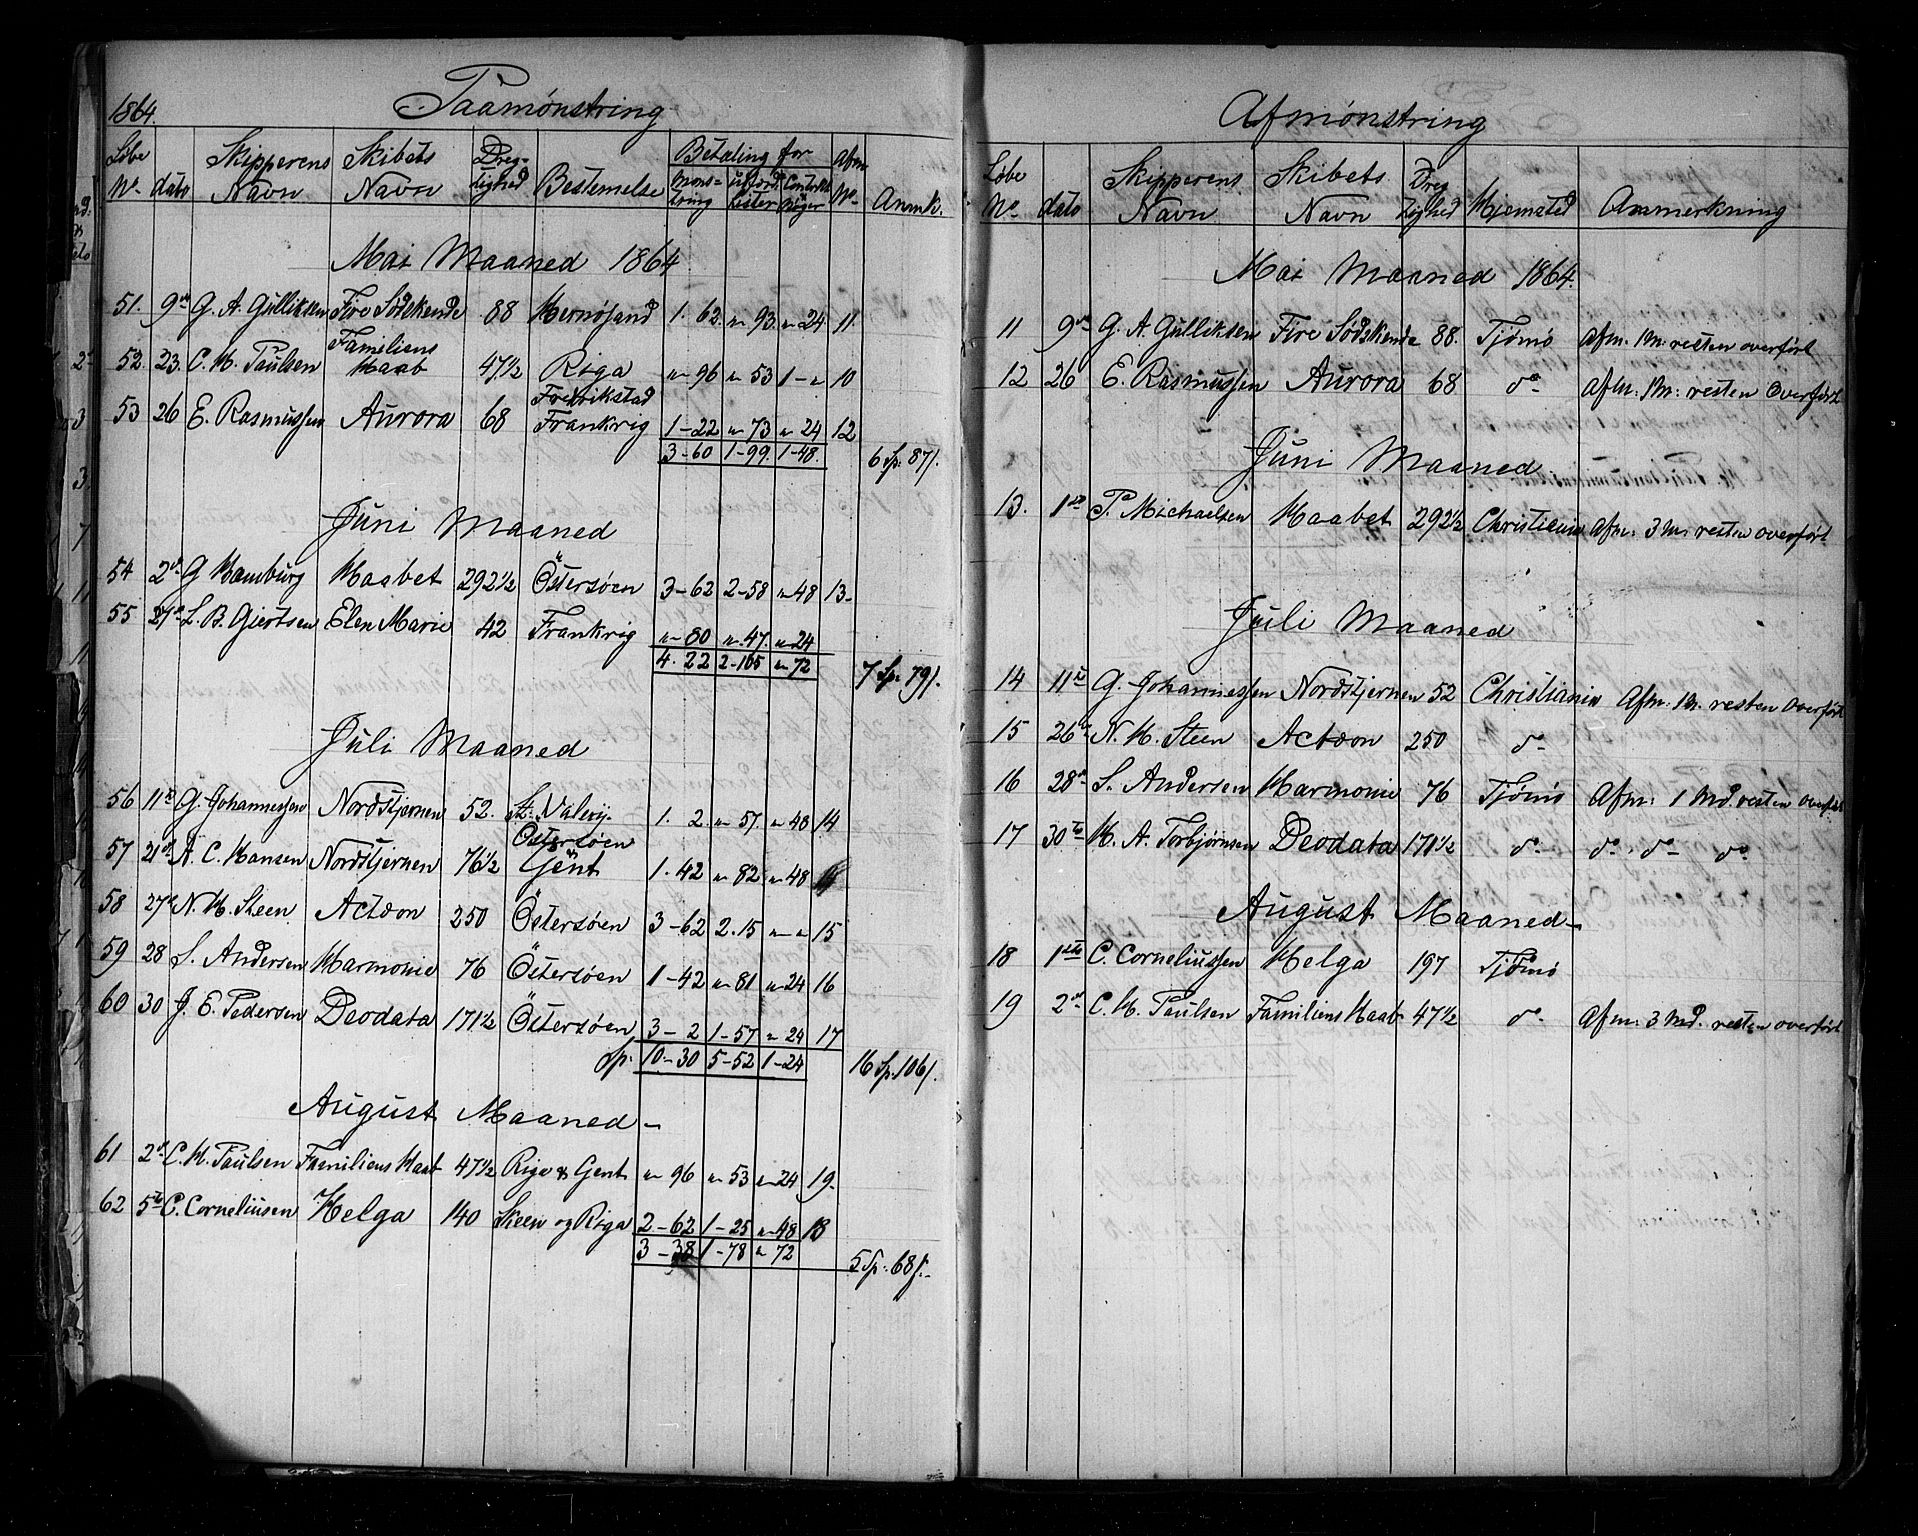 1864. Paamønstring
Løbe No. dato Skipperens Navn Skibets Navn Dreg-tighed Bestemelse Betaling for Møns-tring udførd. Lister Contrakt Bøger Afm No. Anmk.
Mai Maaned 1864
51. 9de G. A. Gulliksen Fire Södskende 88 Hernøsand 1. 62. " 93. " 24 11.
52. 23. C. H. Paulsen Familiens Haab 47 1/2 Riga " 96 " 53 1 - " 10
53 26 E. Rasmussen Aurora 68 Fredrikstad Frankrig 1-22 " 73 " 24 12
3-60 1-99. 1-48. 6 Sp: 87/.
Juni Maaned
54 2d. G Hamburg Haabet 292 1/2 Östersøen 3-62 2-58 " 48 13-
55 27de L. B. Giertsen Elen Marie 42 Frankrig " 80 " 47. " 24
4. 22 2-105 " 72 7 Sp: 79/.
Juli Maaned
56 11te G. Johannessen Nordstjernen 52. St. Valery. 1. 2 " 57. " 48 14
57 21de A. C. Hansen Nordstjernen 76 1/2 Östersøen Gent 1. 42 " 82 " 48
58 27de N. H. Steen Actæon 250 Östersøen 3-62 2.15 " " 15
59 28 S. Andersen Harmonie 76 Östersøen 1-42 " 81 " 24 16
60 30 J. E. Pedersen Deodata 171 1/2 Östersøen 3-2 1-57 " 24 17
Sp: 10-30 5-52 1-24 16 Sp: 106/.
August Maaned -
61 2d. C. H. Paulsen Familiens Haab 47 1/2 Riga & Gent " 96 " 53 " 24 19.
62 5te C. Corneliusen Helga 140 Skeen og Riga 2-62 1-25 " 48 18
3-38 1-78 " 72 5 Sp: 68/.-
Afmønstring
Løbe No. dato Skipperens Navn Skibets Navn Dreg tighed Hjemsted Anmerkning
Mai Maaned 1864.
11 9de G. A. Gulliksen Fire Södskende 88. Tjømø Afm. 1 M. resten overført
12 26 E. Rasmussen Aurora 68 do- Afm: 1 M: resten Overført
Juni Maaned
13. 1ste P. Michaelsen Haabet 292 1/2 Christiania Afm: 3 M. resten overført
Juli Maaned
14 11te G. Johannessen Nordstjernen 52 Christiania Afm. 1 M. resten Overført
15 26de N. H. Steen Actæon 250 do-
16 28de S. Andersen Harmonie 76 Tjømø Afm: 1 Md. resten overført
17 30te H. A. Torbjørnsen Deodata 171 1/2 do- do- do- do-
August Maaned -
18 1ste C. Corneliussen Helga 197 Tjømø
19 2d- C. H. Paulsen Familiens Haab 47 1/2 do- Afm: 3 Md. resten overført